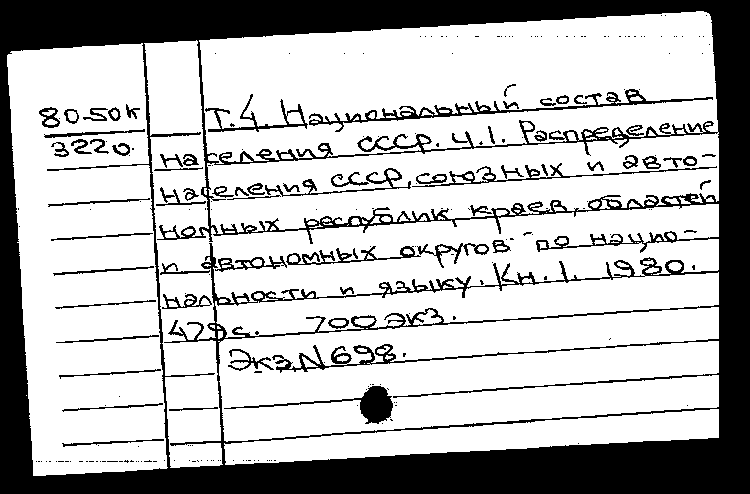 80-50к
3220.
Т.4. Национальный состав
населения СССР. Ч.1. Распределение
населения СССР, союзных и авто-
номных республик, краев, областей
и автономных округов по нацио-
нальности и языку. Кн.1. 1980.
479с. 700 экз.
Экз.N698.